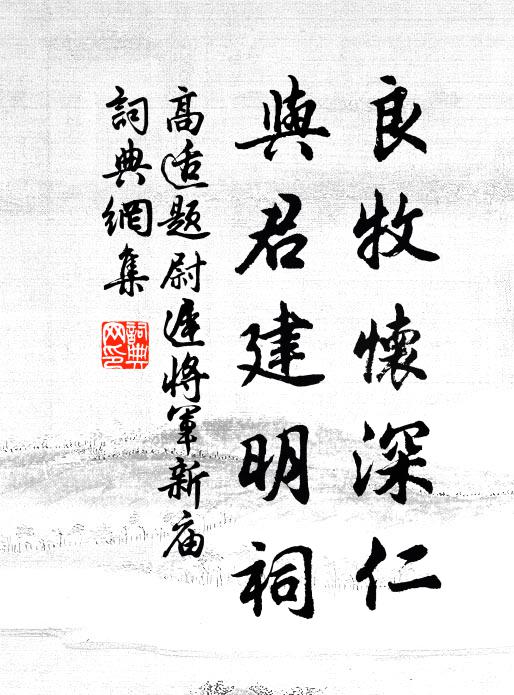 良牧懷深仁
與君建明祠
高适題尉遲將軍新庙
詞典網集
詞典网印